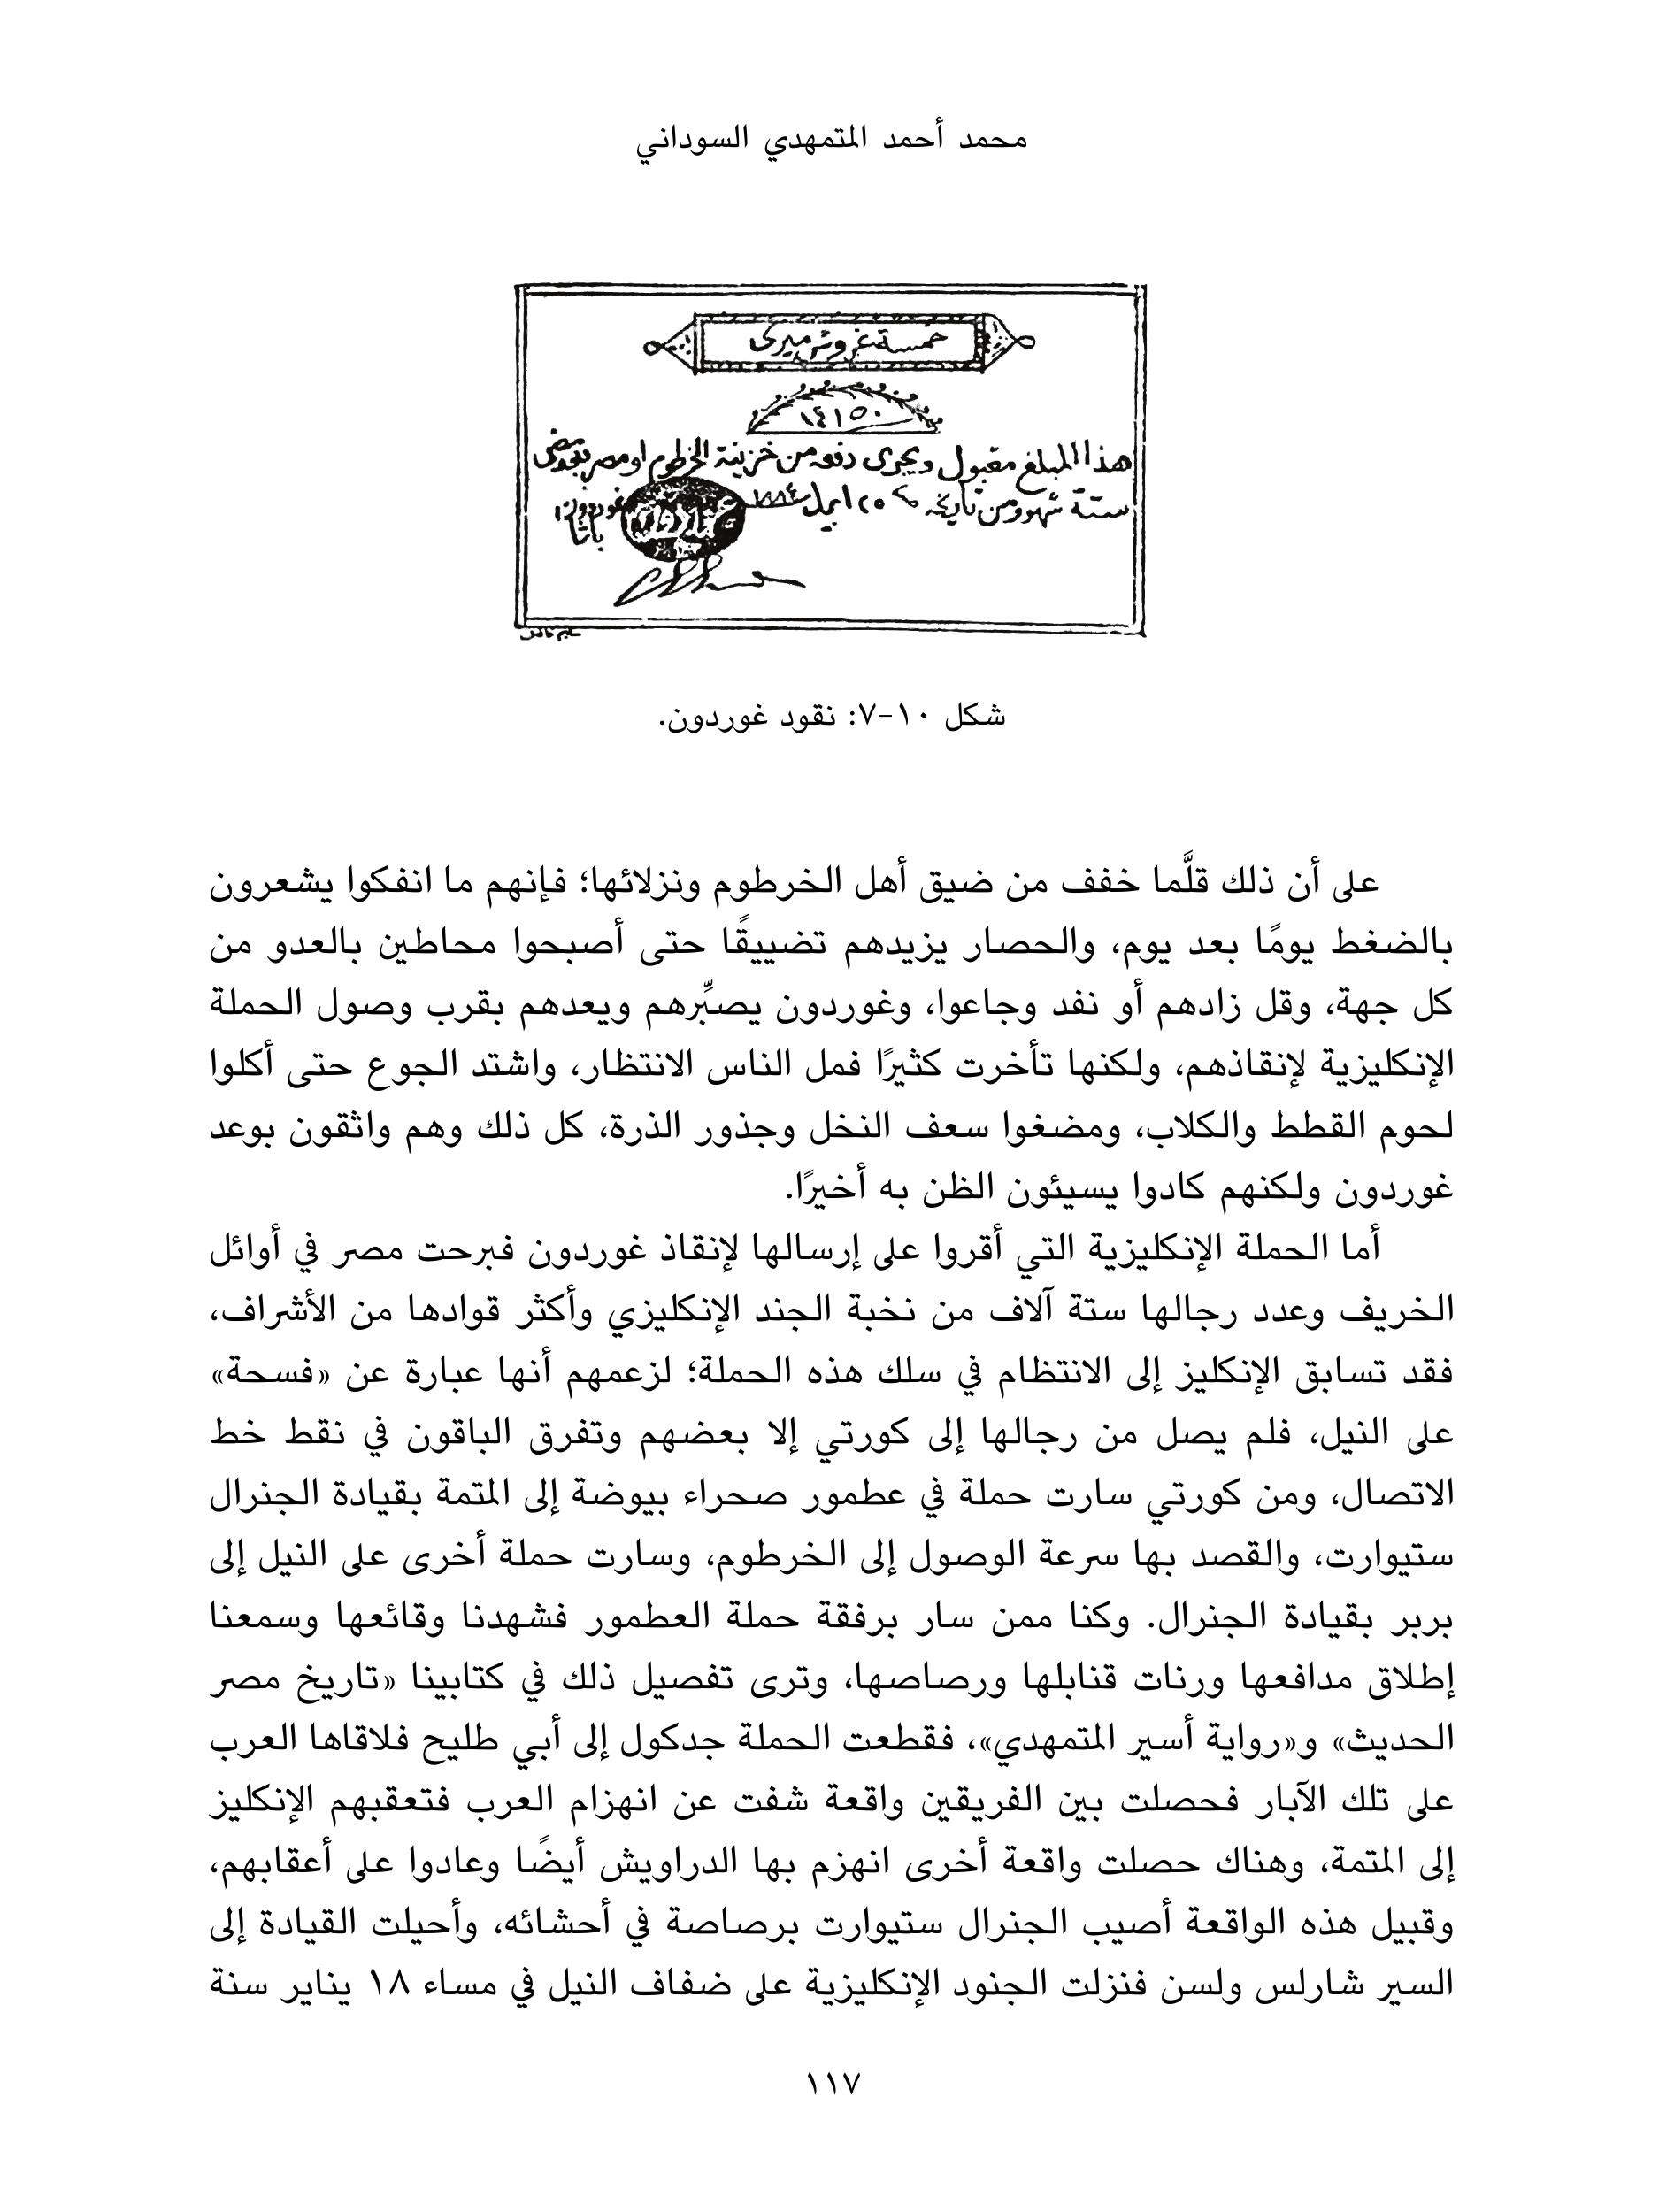 محمد أحمد المتمهدي السوداني
خمسة غروش ميرى
١٤١٥٠
هذا المبلغ مقبول ويجرى دفعه من خزينة الخرطوم او مصر بعد مضى
ستة شهور من تاريخه ٢٥ ابريل ١٨٨٤
غوردون
باشا
شكل ١٠-٧: نقود غوردون.
على أن ذلك قلَّما خفف من ضيق أهل الخرطوم ونزلائها؛ فإنهم ما انفكوا يشعرون
بالضغط يومًا بعد يوم، والحصار يزيدهم تضييقًا حتى أصبحوا محاطين بالعدو من
كل جهة، وقل زادهم أو نفد وجاعوا، وغوردون يصبِّرهم ويعدهم بقرب وصول الحملة
الإنكليزية لإنقاذهم، ولكنها تأخرت كثيرًا فمل الناس الانتظار، واشتد الجوع حتى أكلوا
لحوم القطط والكلاب، ومضغوا سعف النخل وجذور الذرة، كل ذلك وهم واثقون بوعد
غوردون ولكنهم كادوا يسيئون الظن به أخيرًا.
أما الحملة الإنكليزية التي أقروا على إرسالها لإنقاذ غوردون فبرحت مصر في أوائل
الخريف وعدد رجالها ستة آلاف من نخبة الجند الإنكليزي وأكثر قوادها من الأشراف،
فقد تسابق الإنكليز إلى الانتظام في سلك هذه الحملة؛ لزعمهم أنها عبارة عن «فسحة»
على النيل، فلم يصل من رجالها إلى كورتي إلا بعضهم وتفرق الباقون في نقط خط
الاتصال، ومن كورتي سارت حملة في عطمور صحراء بيوضة إلى المتمة بقيادة الجنرال
ستيوارت، والقصد بها سرعة الوصول إلى الخرطوم، وسارت حملة أخرى على النيل إلى
بربر بقيادة الجنرال. وكنا ممن سار برفقة حملة العطمور فشهدنا وقائعها وسمعنا
إطلاق مدافعها ورنات قنابلها ورصاصها، وترى تفصيل ذلك في كتابينا «تاريخ مصر
الحديث» و«رواية أسير المتمهدي»، فقطعت الحملة جدكول إلى أبي طليح فلاقاها العرب
على تلك الآبار فحصلت بين الفريقين واقعة شفت عن انهزام العرب فتعقبهم الإنكليز
إلى المتمة، وهناك حصلت واقعة أخرى انهزم بها الدراويش أيضًا وعادوا على أعقابهم،
وقبيل هذه الواقعة أصيب الجنرال ستيوارت برصاصة في أحشائه، وأحيلت القيادة إلى
السير شارلس ولسن فنزلت الجنود الإنكليزية على ضفاف النيل في مساء ١٨ يناير سنة
١١٧